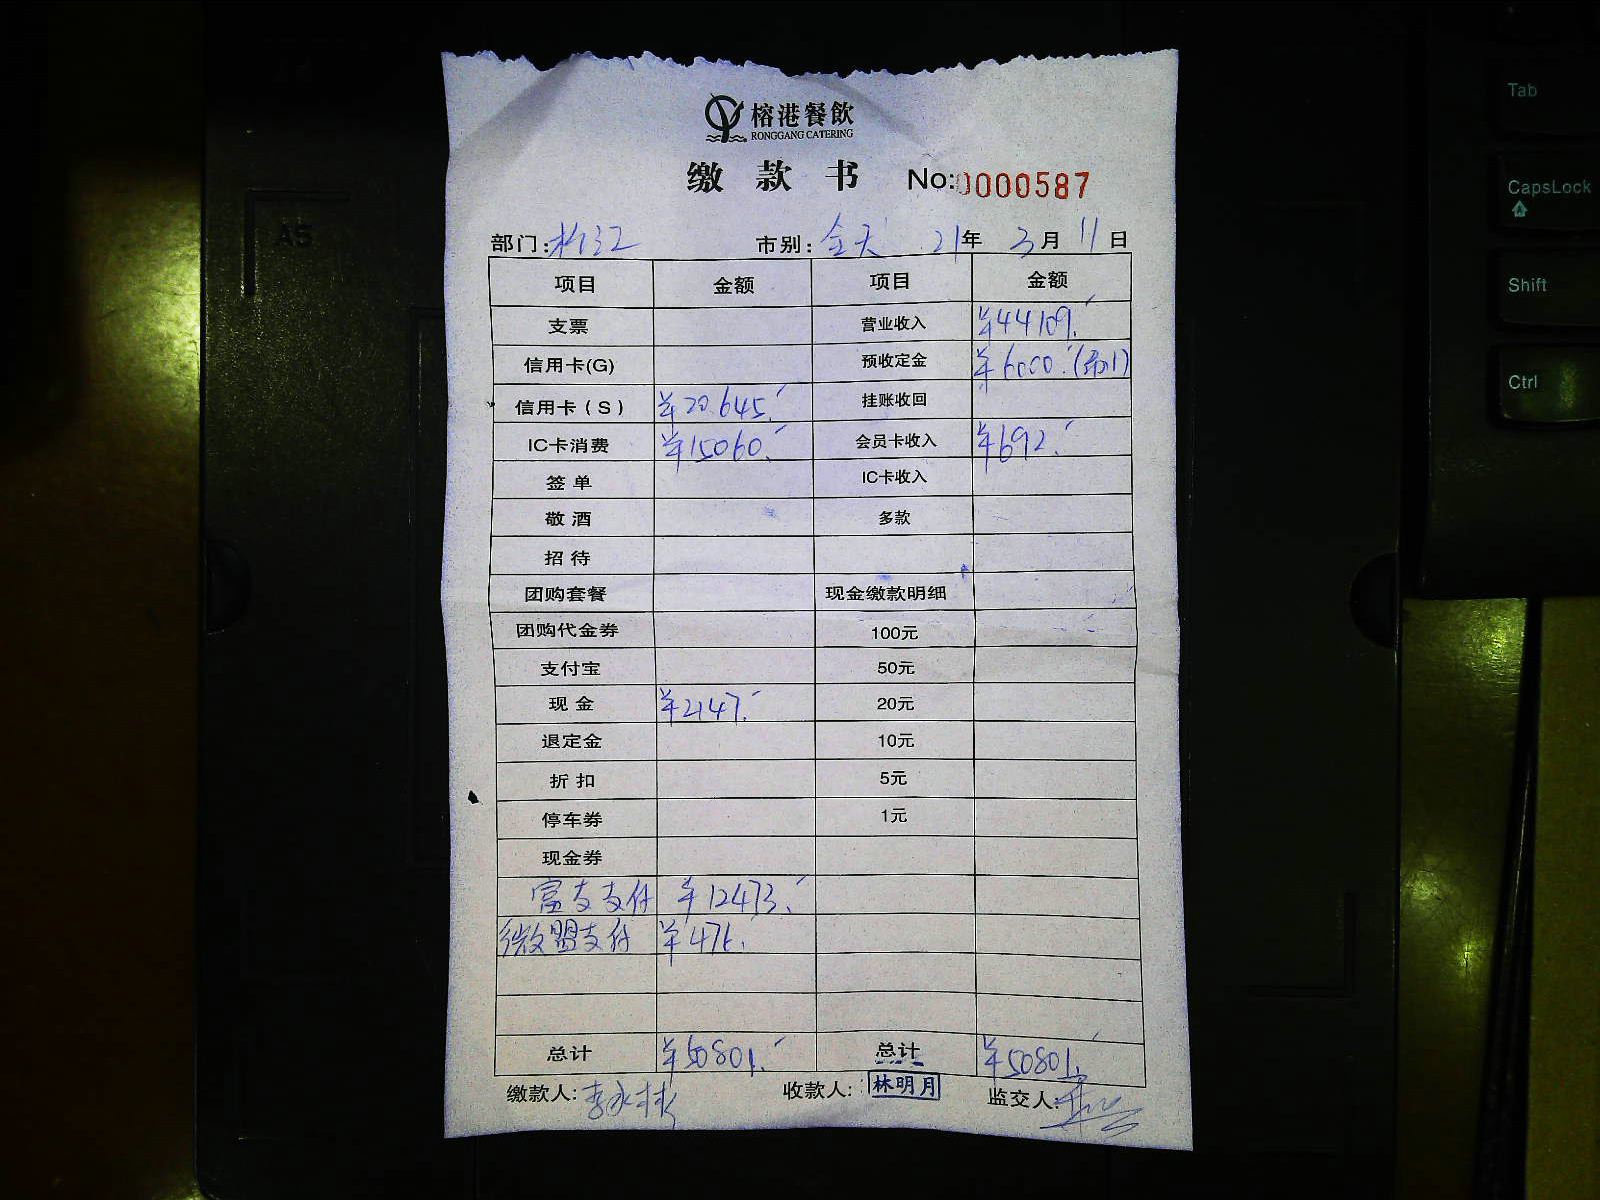 榕港餐飲
RONGGANG CATERING
缴款书 No:0000587
部门: 市别:全天 21年3月11日
项目 金额 项目 金额
支票 营业收入 ¥44109.
信用卡(G) 预收定金 ¥6000.
信用卡(S) ¥20645. 挂账收回
IC卡消费 ¥15060. 会员卡收入 ¥692.
签单 IC卡收入
敬酒 多款
招待
团购套餐 现金缴款明细
团购代金券 100元
支付宝 50元
现金 ¥2147. 20元
退定金 10元
折扣 5元
停车券 1元
现金券
富友支付 ¥12473.
微盟支付 ¥476.
总计 ¥50801. 总计 ¥50801.
缴款人: 收款人: 林明月 监交人:
A5
Tab
CapsLock
Shift
Ctrl